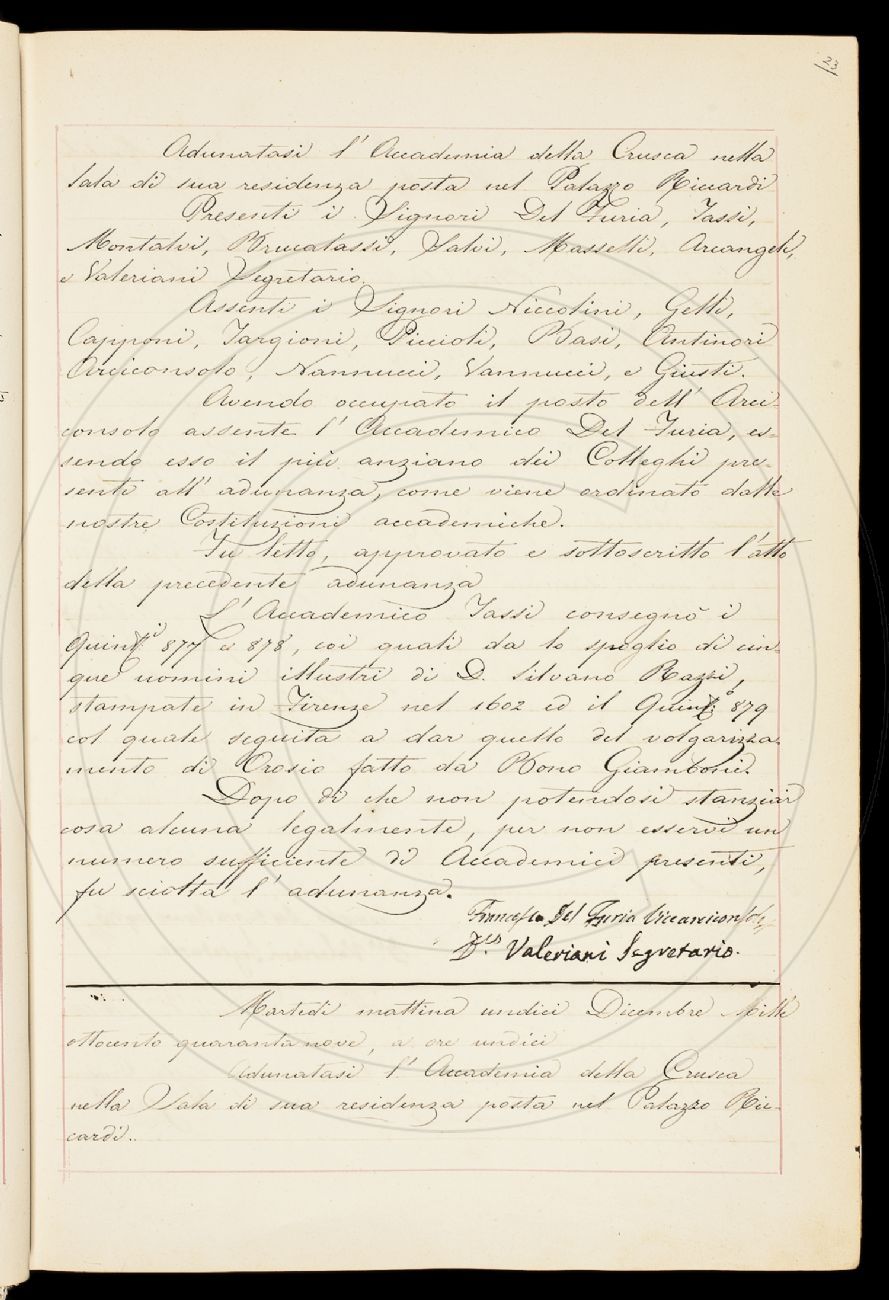 23
Adunatasi l' Accademia della Crusca nella
Sala di sua residenza posta nel Palazzo Riccardi
Presenti i Signori Del Furia, Tassi,
Montalvi, Brucalassi, Salvi, Masselli, Arcangeli,
e Valeriani Segretario.
Assenti i Signori Niccolini, Gelli,
Capponi, Targioni, Piccioli, Basi, Antinori
Arciconsolo, Nannucci, Vannucci, e Giusti.
Avendo occupato il posto dell' Arci-
consolo assente l' Accademico Del Furia, es-
sendo esso il più anziano dei Colleghi pre-
senti all' adunanza, come viene ordinato dalle
nostre Costituzioni accademiche.
Fu letto, approvato e sottoscritto l'atto
della precedente adunanza
L' Accademico Tassi consegnò i
Quint.i 877 e 878, coi quali da lo spoglio di cin-
que uomini illustri di D. Silvano Razzi,
stampate in Firenze nel 1602 ed il Quint.o 879
col quale seguita a dar quello del volgarizza-
mento di Orosio fatto da Bono Giamboni.
Dopo di che non potendosi stanziar
cosa alcuna legalmente, per non esservi un
numero sufficiente di Accademici presenti,
fu sciolta l' adunanza.
Francesco Del Furia Vicearciconsolo
D.r Valeriani Segretario.
Martedi mattina undici Dicembre Mille
ottocento quaranta nove, a ore undici
Adunatasi l' Accademia della Crusca
nella Sala di sua residenza posta nel Palazzo Ric-
cardi.